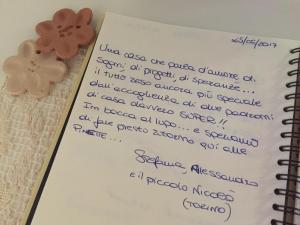 25/05/2017
Una casa che parla d'amore, di
sogni, di progetti, di speranze...
il tutto reso ancora più speciale
dall'accoglienza di due padroni
di casa davvero SUPER!!
Im bocca al lupo... e speriamo
di fare presto ritorno qui alle
PINETTE...
Stefania, Alessandro
e il piccolo Nicolò
(TORINO)